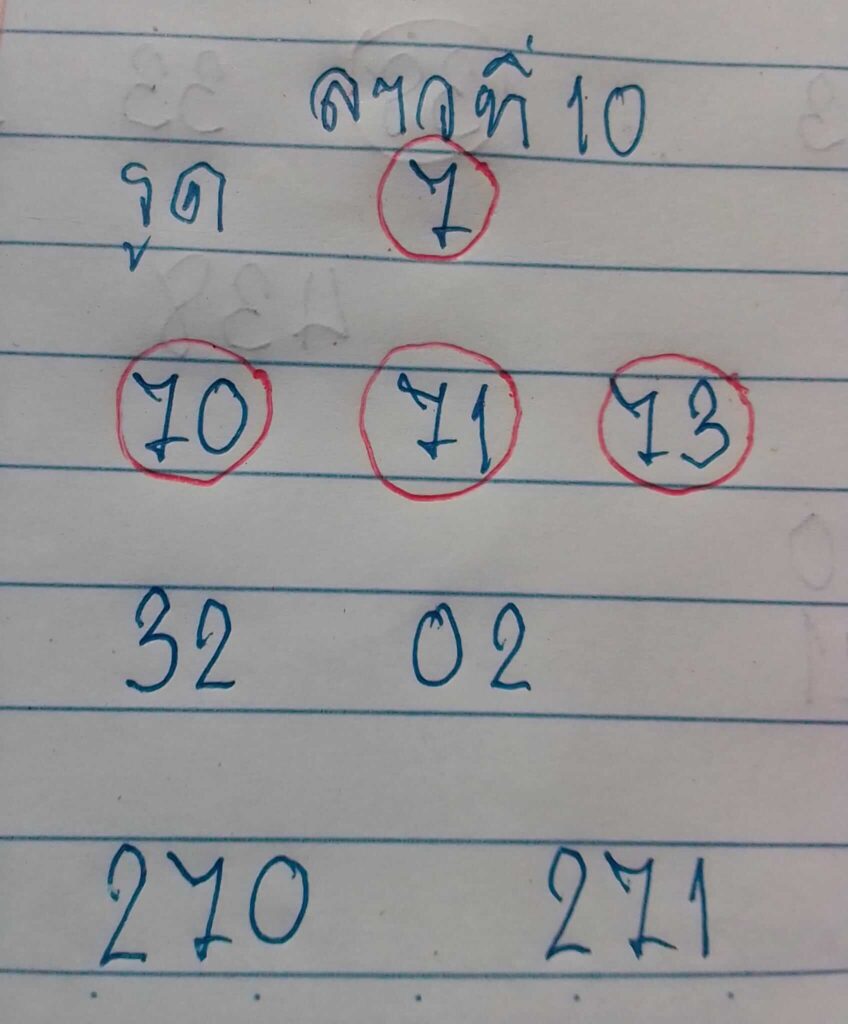 ลาวที่ 10
รูด 7
70 71 73
32 02
270 271